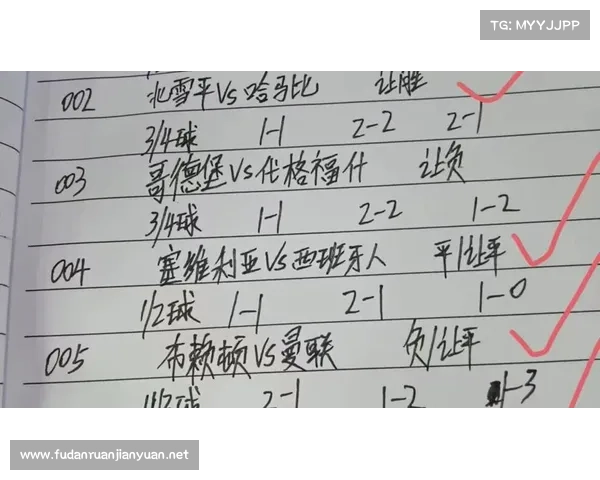 TG: MYYJJPP
002 北雪平VS哈马比 让胜
3/4球 1-1 2-2 2-1
003 哥德堡VS代格福什 让负
3/4球 1-1 2-2 1-2
004 塞维利亚VS西班牙人 平/让平
1/2球 1-1 2-1 1-0
005 布赖顿VS曼联 负/让平
2-1 1-2 1-3
www.fudanxuanjianyuan.net